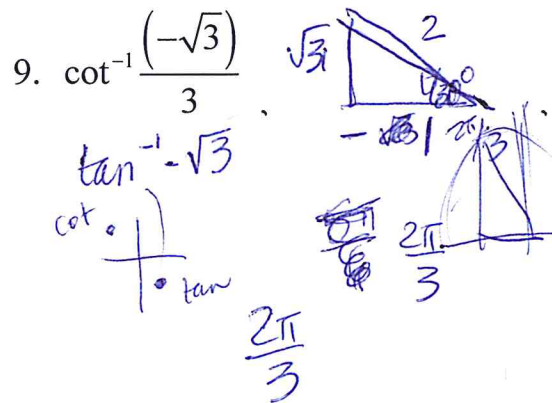 9. cot⁻¹ (-√3)/3
√3 2
30°
- 1 2π/3
tan⁻¹ -√3
cot
tan
2π/3
2π/3